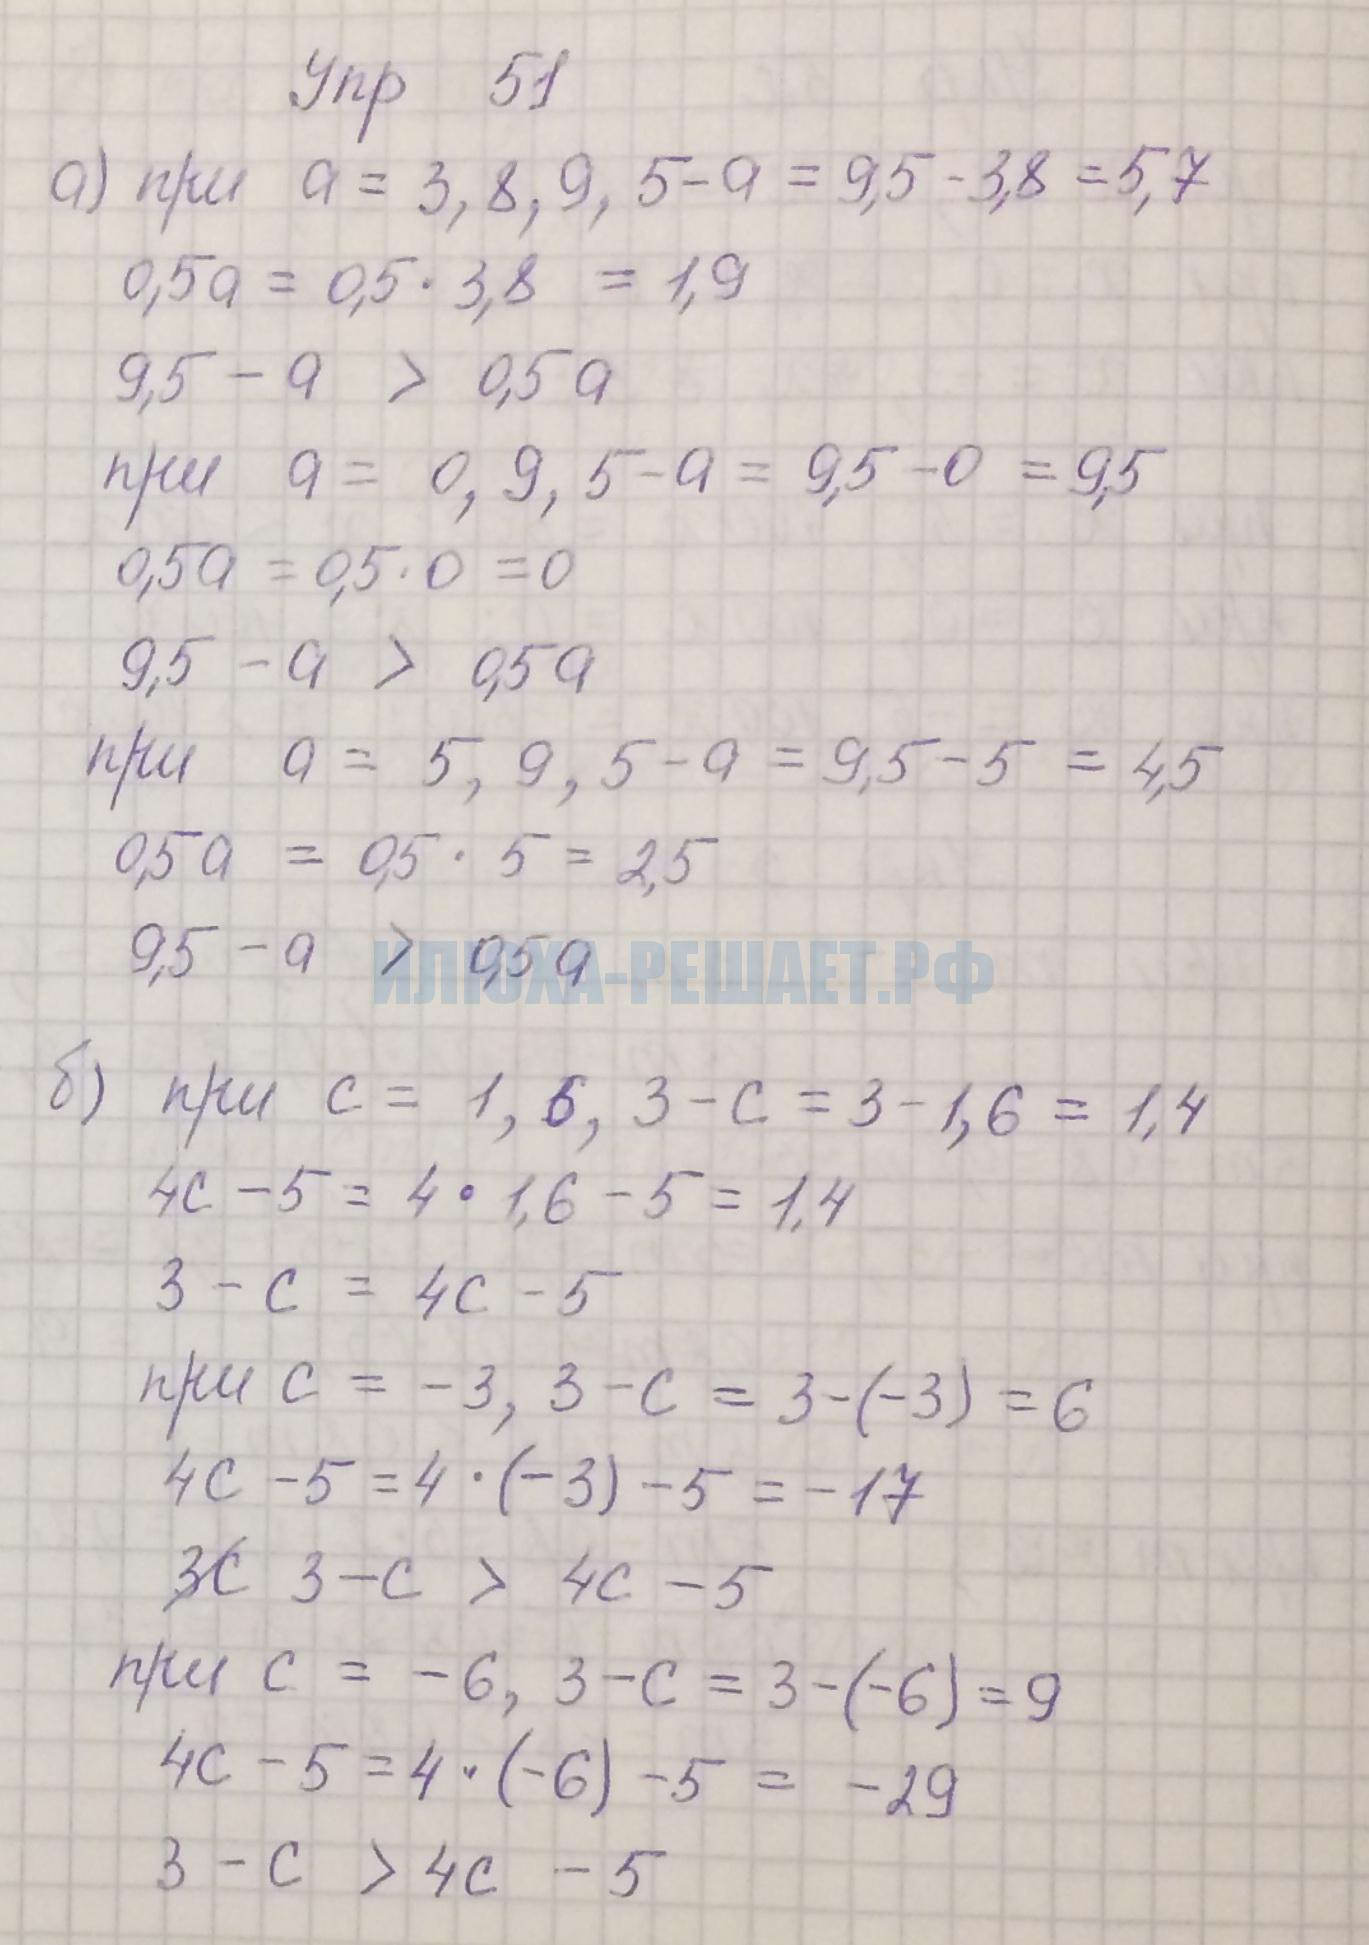 Упр 51
а) при a = 3,8, 9,5 - a = 9,5 - 3,8 = 5,7
0,5a = 0,5 · 3,8 = 1,9
9,5 - a > 0,5a
при a = 0, 9,5 - a = 9,5 - 0 = 9,5
0,5a = 0,5 · 0 = 0
9,5 - a > 0,5a
при a = 5, 9,5 - a = 9,5 - 5 = 4,5
0,5a = 0,5 · 5 = 2,5
9,5 - a > 0,5a
ИЛЮХА-РЕШАЕТ.РФ
б) при c = 1,6, 3 - c = 3 - 1,6 = 1,4
4c - 5 = 4 · 1,6 - 5 = 1,4
3 - c = 4c - 5
при c = -3, 3 - c = 3 - (-3) = 6
4c - 5 = 4 · (-3) - 5 = -17
3c 3 - c > 4c - 5
при c = -6, 3 - c = 3 - (-6) = 9
4c - 5 = 4 · (-6) - 5 = -29
3 - c > 4c - 5